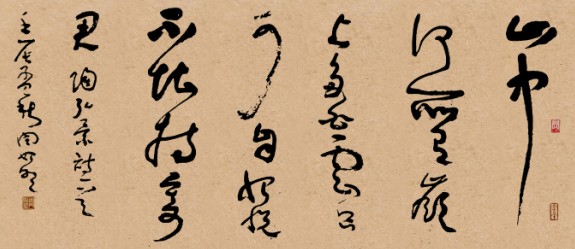 山中
何所有嶺
上多白雲只
可自怡悦
不堪持寄
君 陶弘景詩一首
壬辰